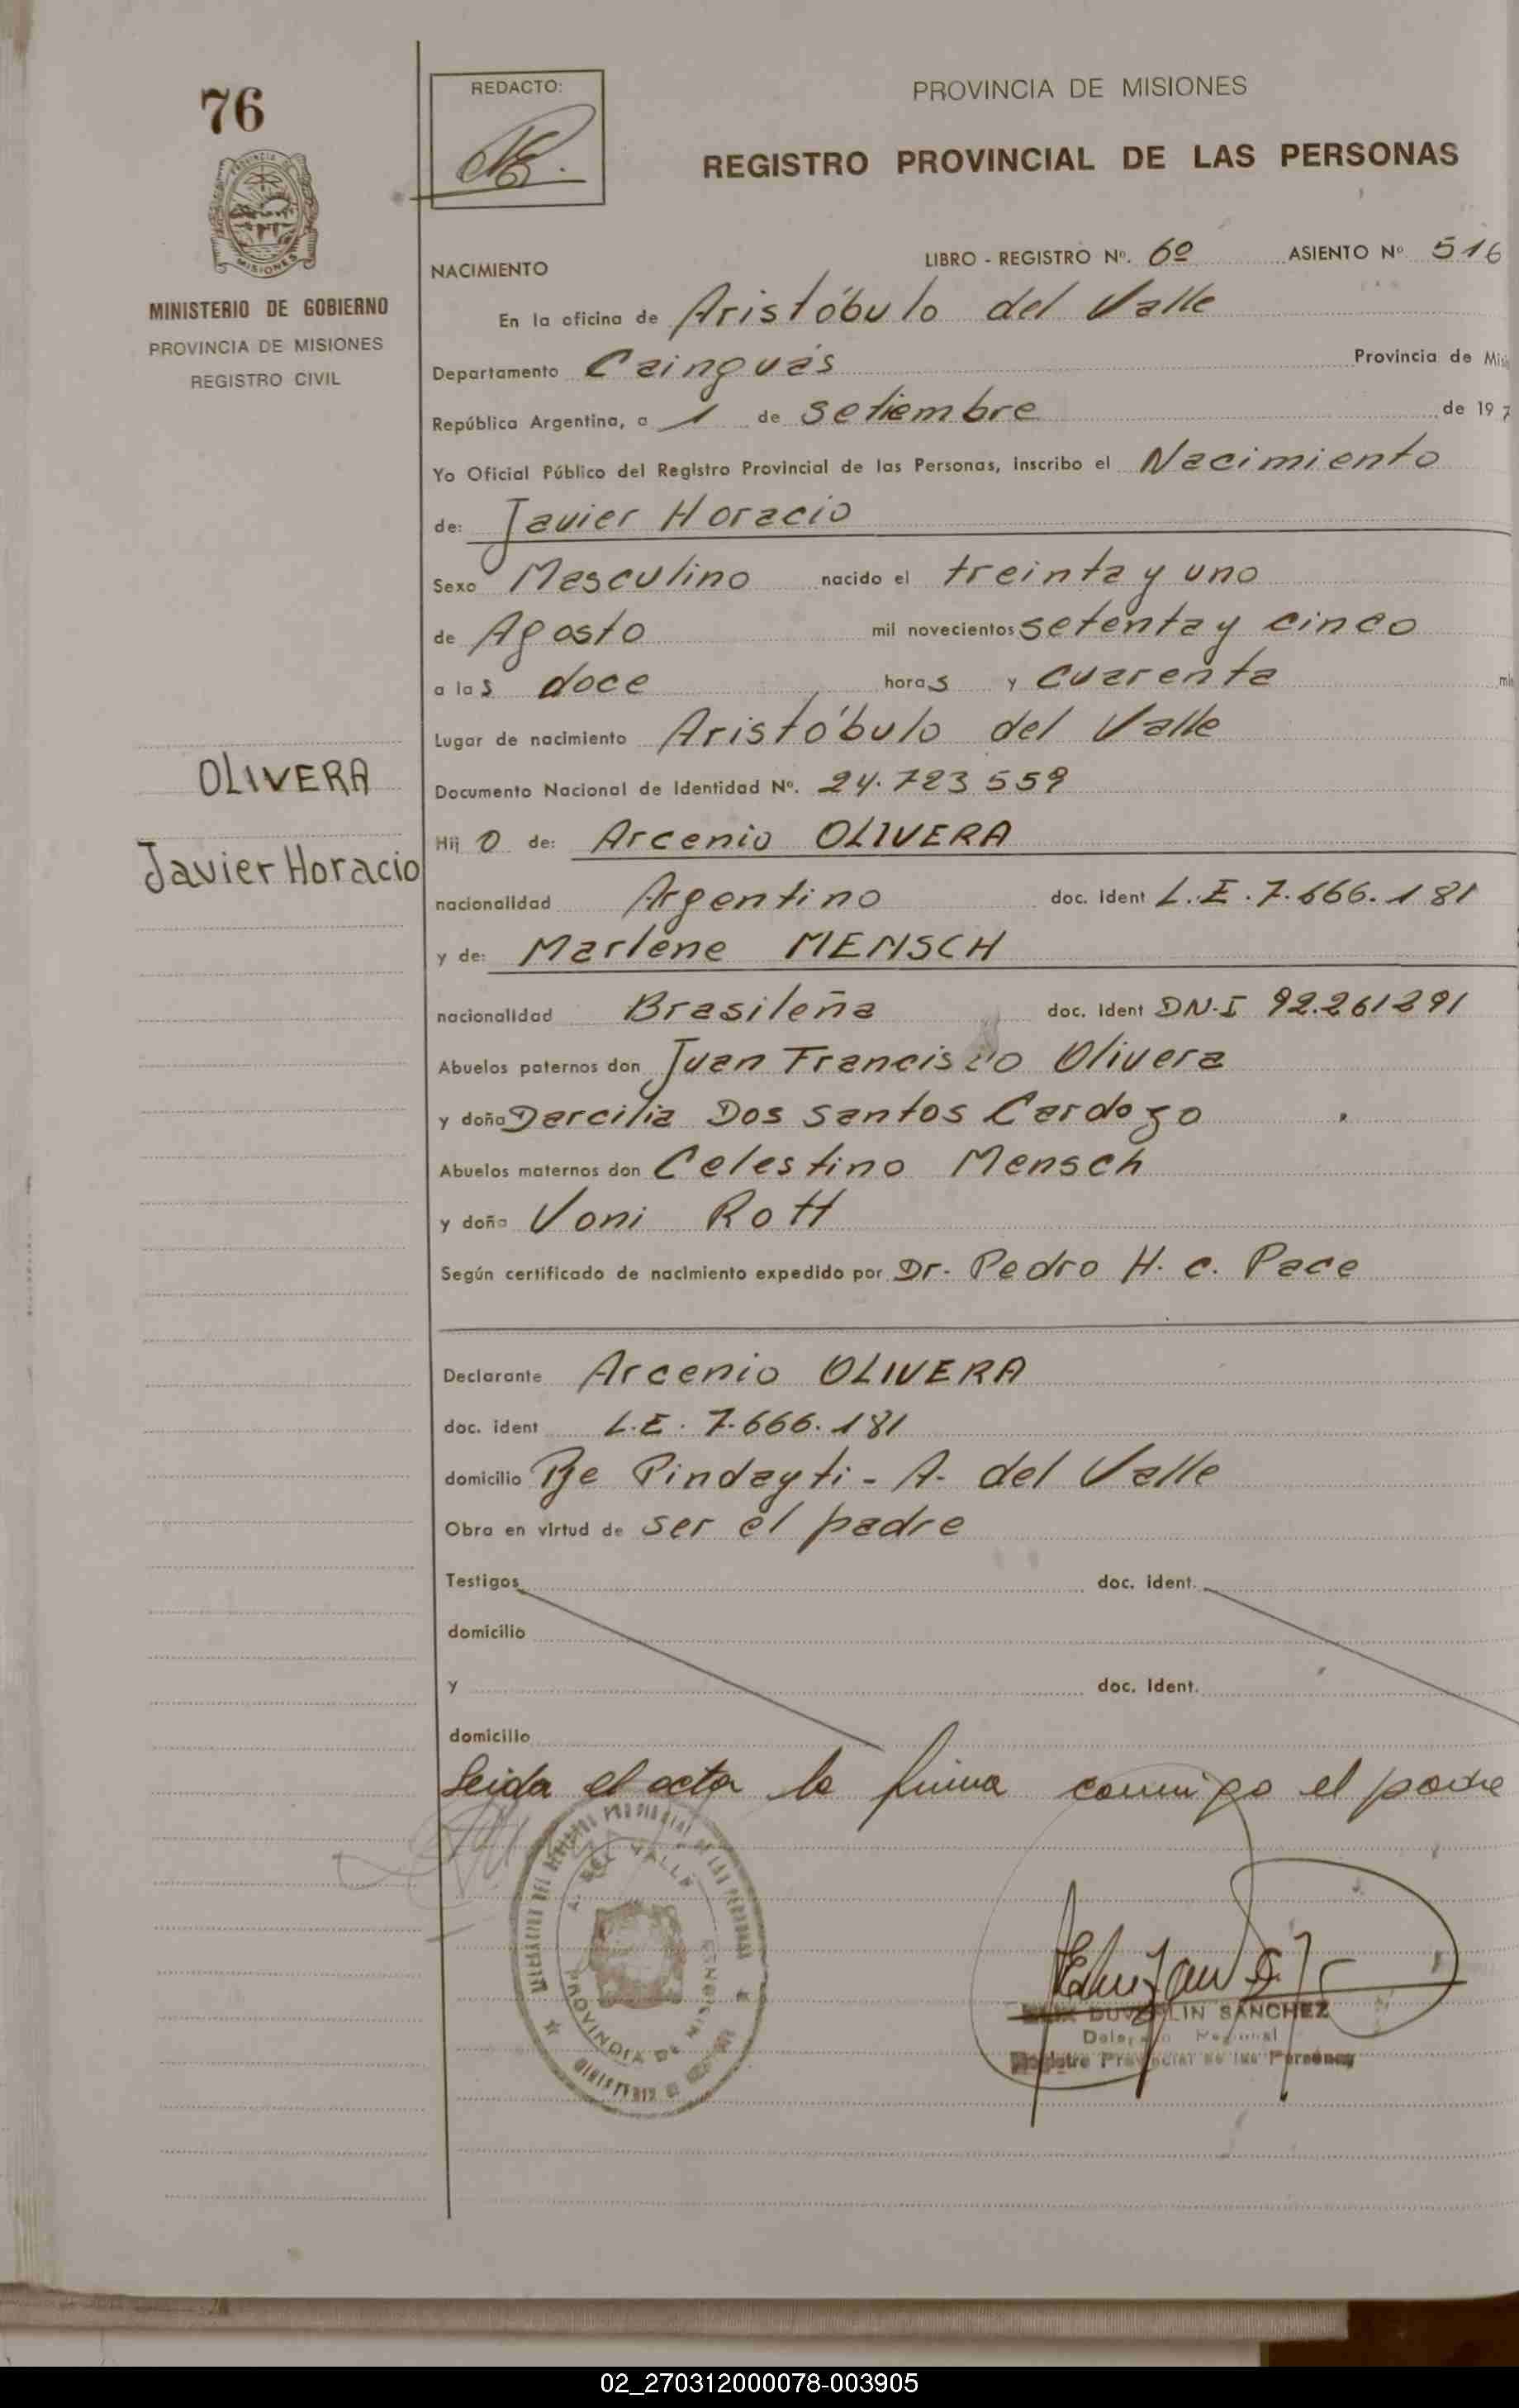 76
REDACTO:
PROVINCIA DE MISIONES
REGISTRO PROVINCIAL DE LAS PERSONAS
MISIONES
MINISTERIO DE GOBIERNO
PROVINCIA DE MISIONES
REGISTRO CIVIL
NACIMIENTO LIBRO - REGISTRO Nº. 6º ASIENTO Nº 516
En la oficina de Aristóbulo del Valle
Departamento Cainguás Provincia de Mis
República Argentina, a 1 de setiembre de 19
Yo Oficial Público del Registro Provincial de las Personas, inscribo el Nacimiento
de: Javier Horacio
Sexo Masculino nacido el treinta y uno
de Agosto mil novecientos setenta y cinco
a las doce horas y cuarenta
Lugar de nacimiento Aristóbulo del Valle
Documento Nacional de Identidad Nº. 24.723559
OLIVERA
Javier Horacio
Hijo de: Arcenio OLIVERA
nacionalidad Argentino doc. ident L.E. 7.666.181
y de: Marlene MENSCH
nacionalidad Brasileña doc. ident DN.I 92.261291
Abuelos paternos don Juan Francisco Olivera
y doña Darcilia Dos santos Cardozo
Abuelos maternos don Celestino Mensch
y doña Voni Rott
Según certificado de nacimiento expedido por Dr. Pedro H. c. Pace
Declarante Arcenio OLIVERA
doc. ident L.E. 7.666.181
domicilio Pje Pindayti - A. del Valle
Obra en virtud de ser el padre
Testigos doc. ident.
domicilio
y doc. ident.
domicilio
Leida el acta la firma conmigo el padre
A. DEL VALLE
PROVINCIA DE MISIONES
SANCHEZ
Registro Provincial de las Personas
02_270312000078-003905